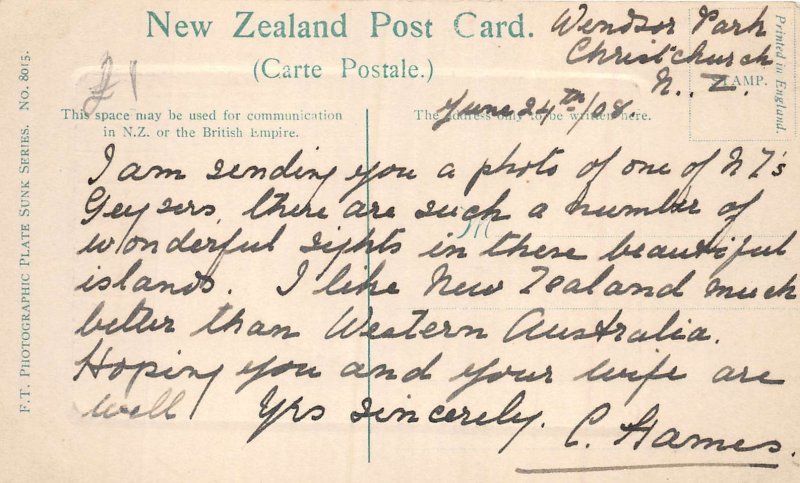 New Zealand Post Card.
(Carte Postale.)
Windsor Park
Christchurch
N. Z.
June 24th/08.
£1
STAMP.
Printed in England.
This space may be used for communication
in N.Z. or the British Empire.
The address only to be written here.
F.T. PHOTOGRAPHIC PLATE SUNK SERIES. NO. 8015.
I am sending you a photo of one of N Z's
Geysers, there are such a number of
wonderful sights in these beautiful
islands. I like New Zealand much
better than Western Australia.
Hoping you and your wife are
well Yrs sincerely.
C. Hames.